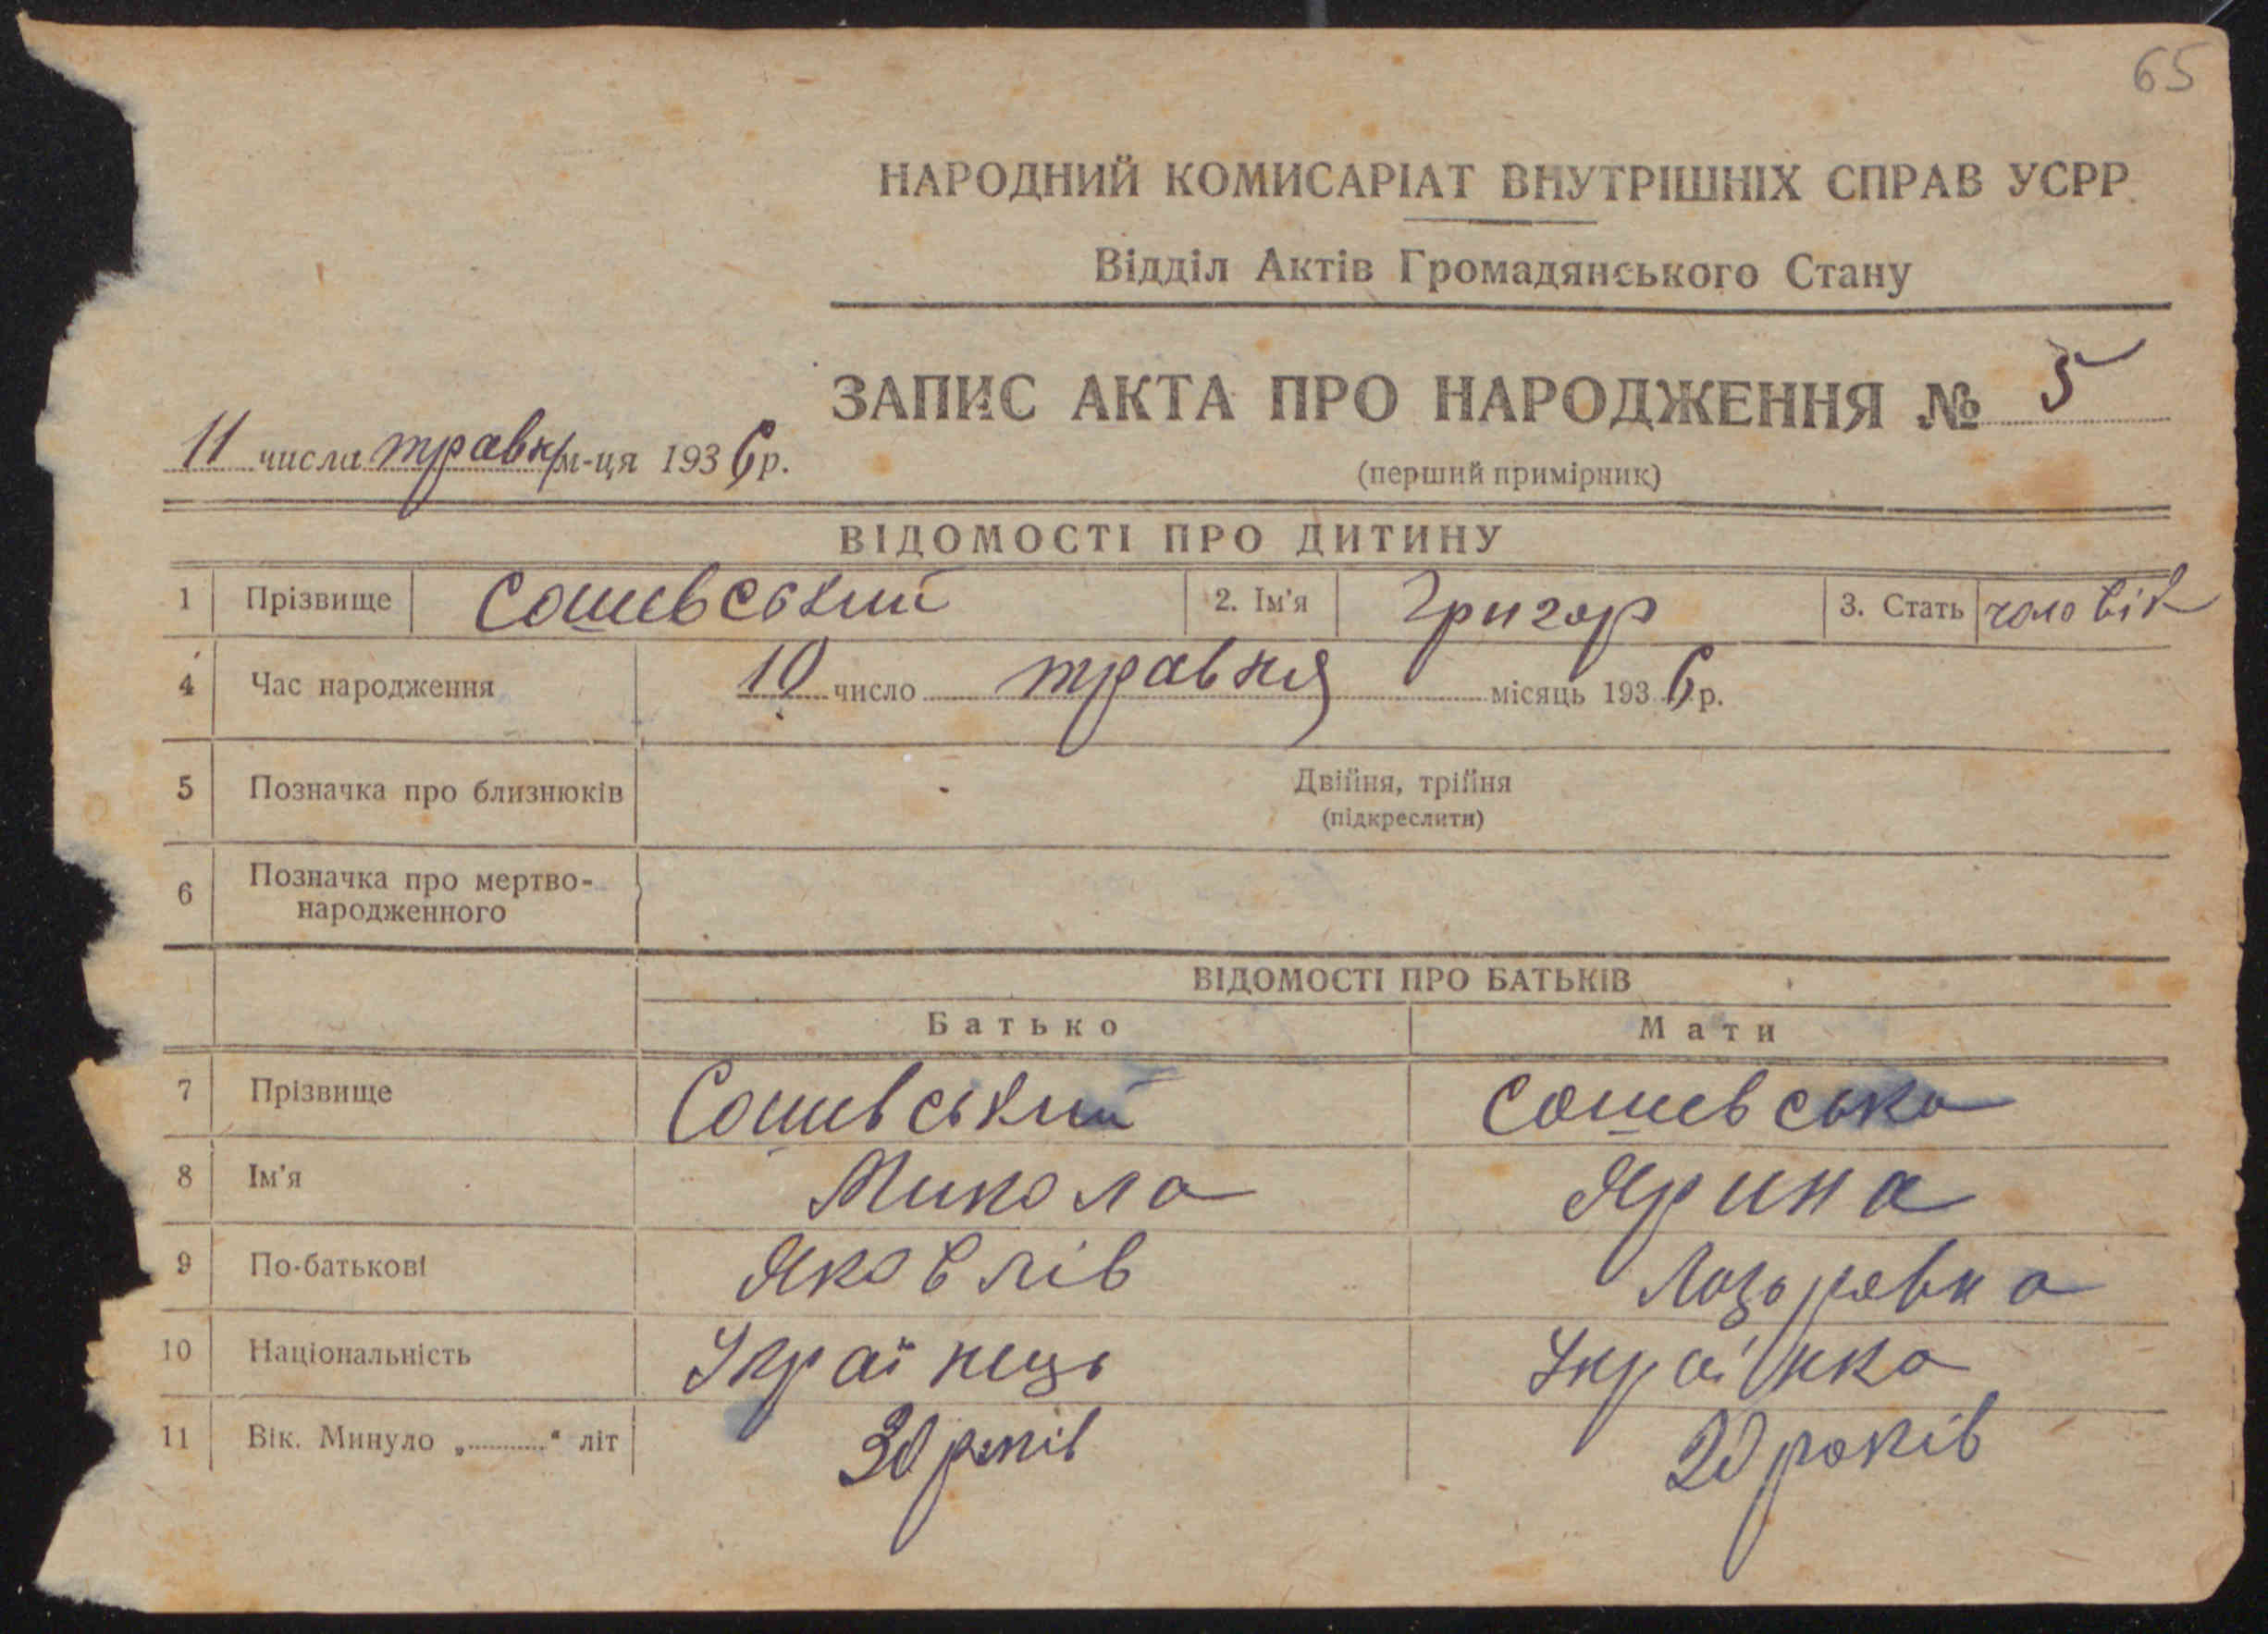 65
НАРОДНИЙ КОМИСАРІАТ ВНУТРІШНІХ СПРАВ УСРР
Відділ Актів Громадянського Стану
ЗАПИС АКТА ПРО НАРОДЖЕННЯ № 5
11 числа травня м-ця 1936 р.
(перший примірник)
ВІДОМОСТІ ПРО ДИТИНУ
1 Прізвище Сошевський 2. Ім'я Григор 3. Стать чоловік
4 Час народження 10 число травня місяць 1936 р.
5 Позначка про близнюків Двійня, трійня
(підкреслити)
6 Позначка про мертво-
народженного
ВІДОМОСТІ ПРО БАТЬКІВ
Батько Мати
7 Прізвище Сошевський Сошевська
8 Ім'я Микола Ярина
9 По-батькові Яковлів Лазоровна
10 Національність Українець Українка
11 Вік. Минуло „............“ літ 30 років 20 років